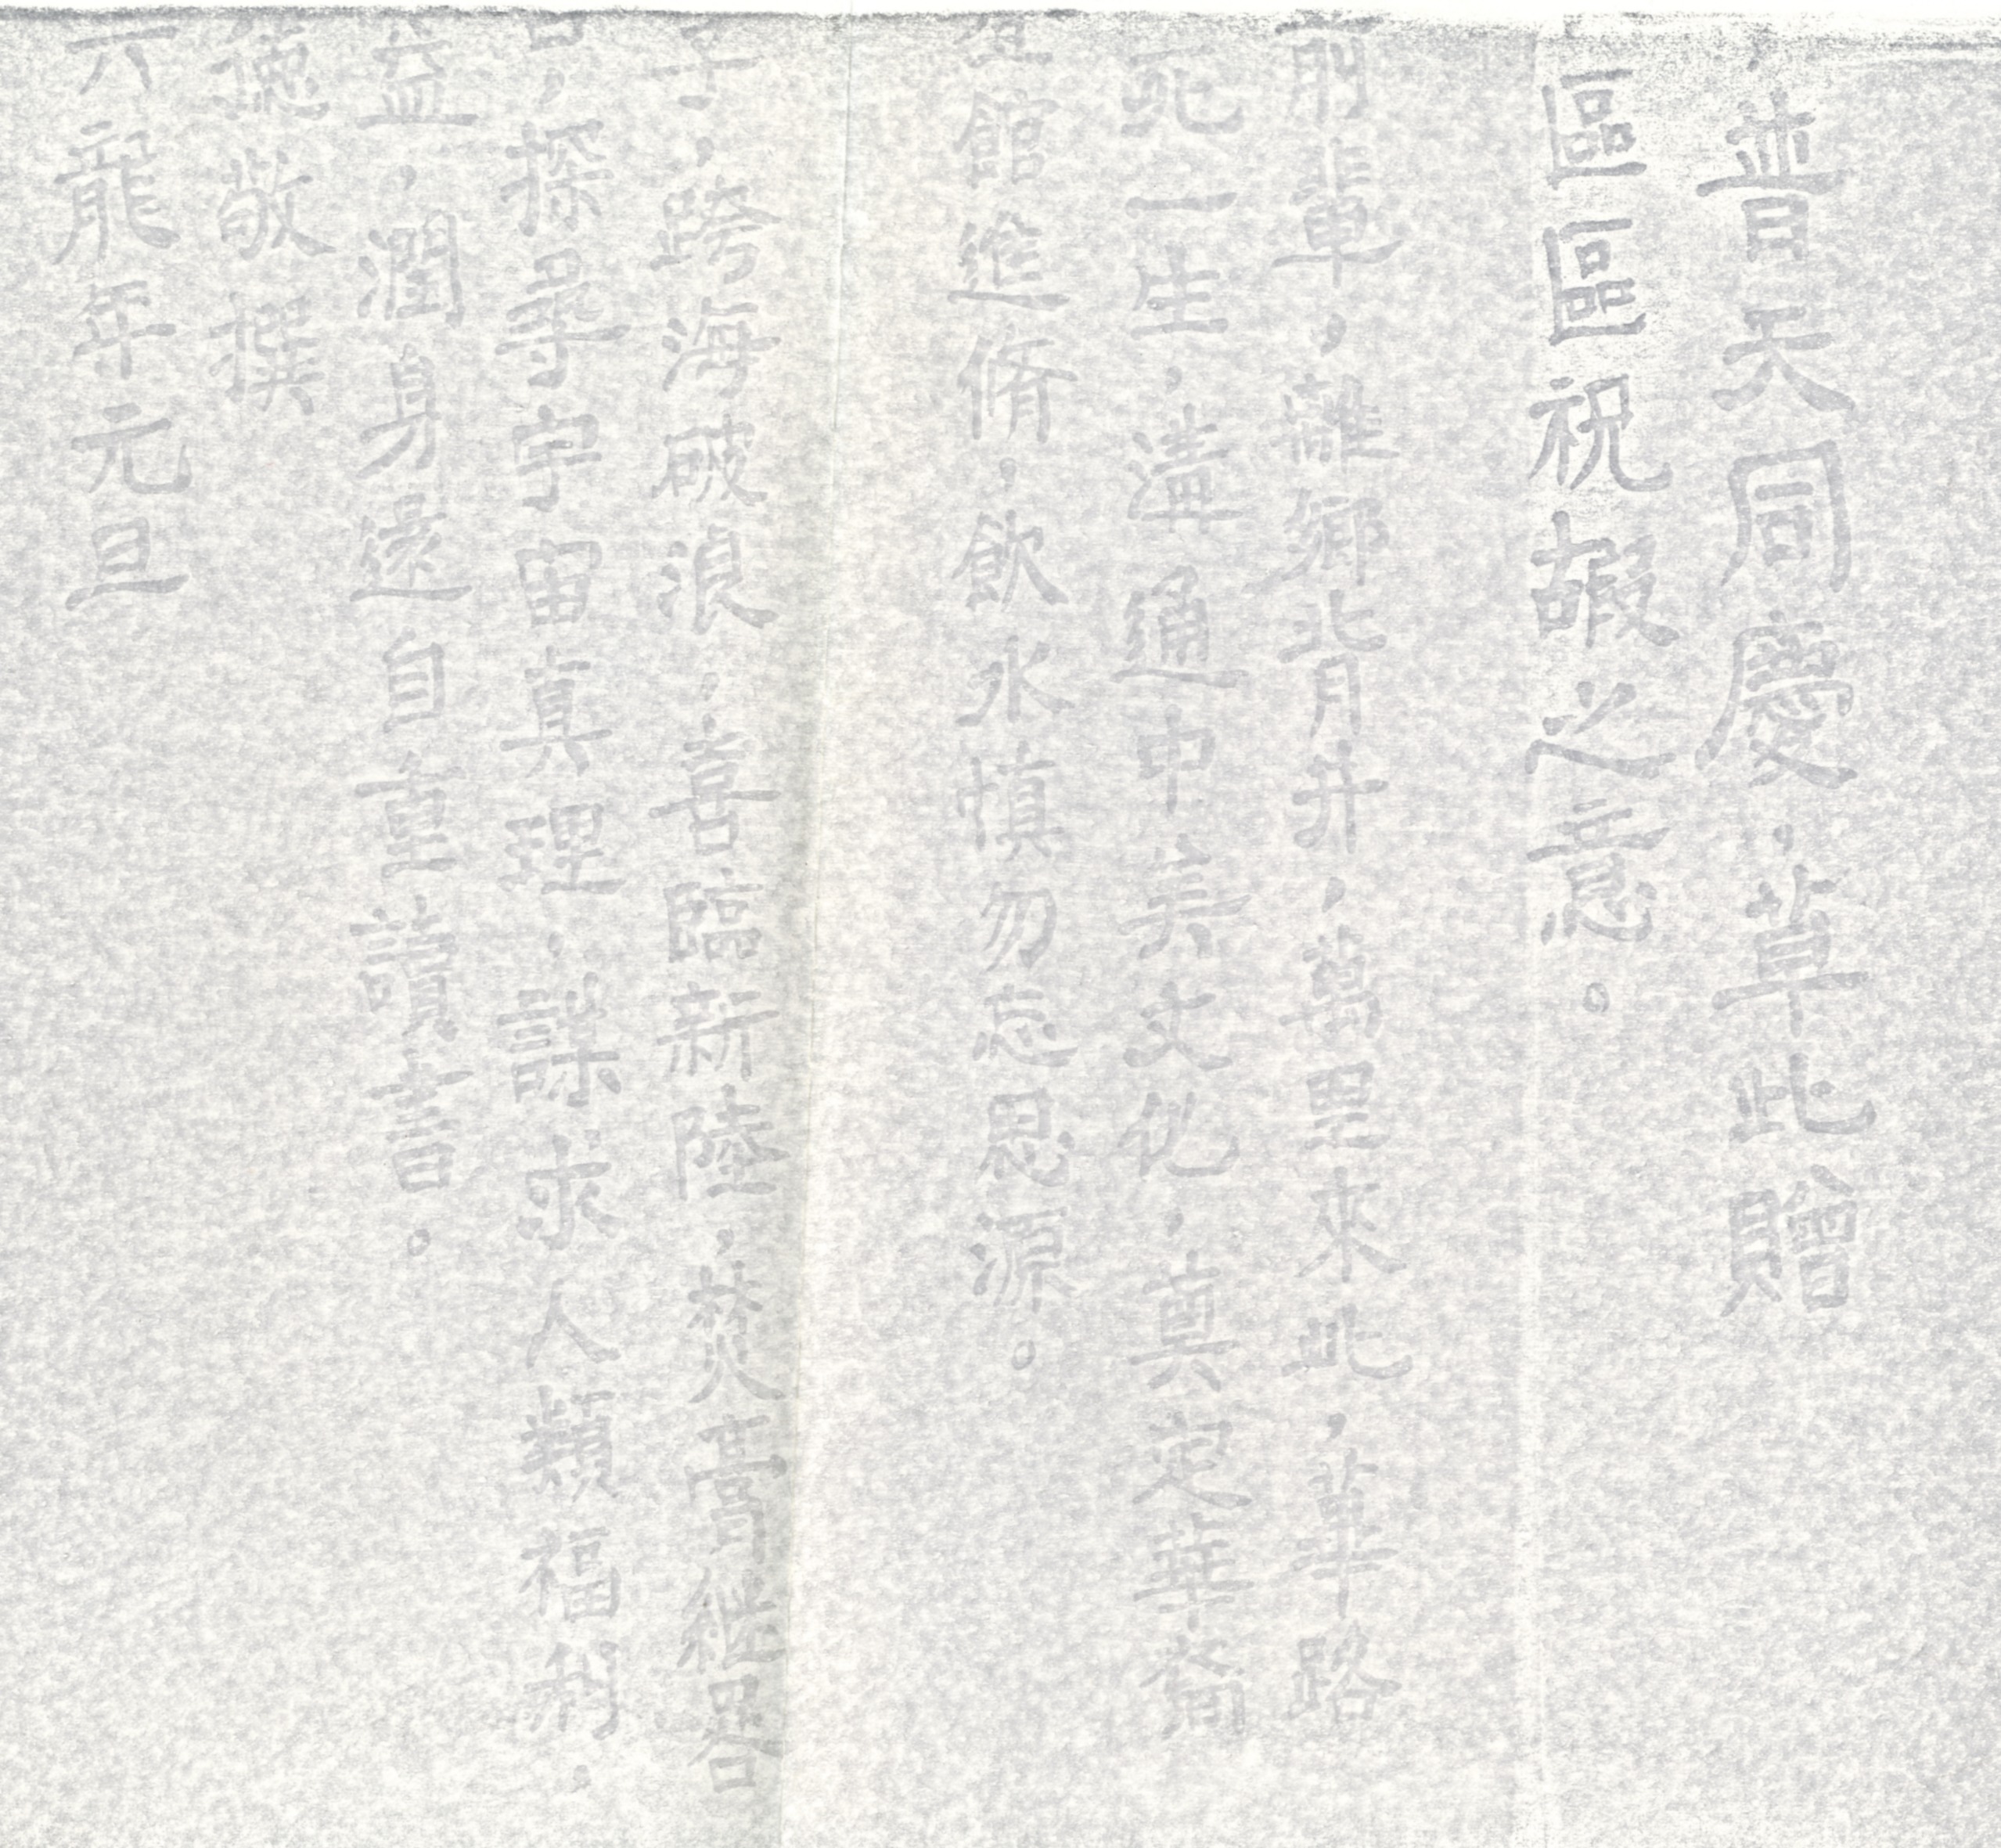 普天同慶，草此贈
區區祝嘏之意。
前輩，離鄉背井，萬里來此，華路
死一生，溝通中美文化，奠定華裔
館進脩，飲水慎勿忘思源。
子，跨海破浪，喜臨新陸，焚膏繼晷
探尋宇宙真理，謀求人類福利，
益，潤身遠自重讀書。
德敬撰
六龍年元旦